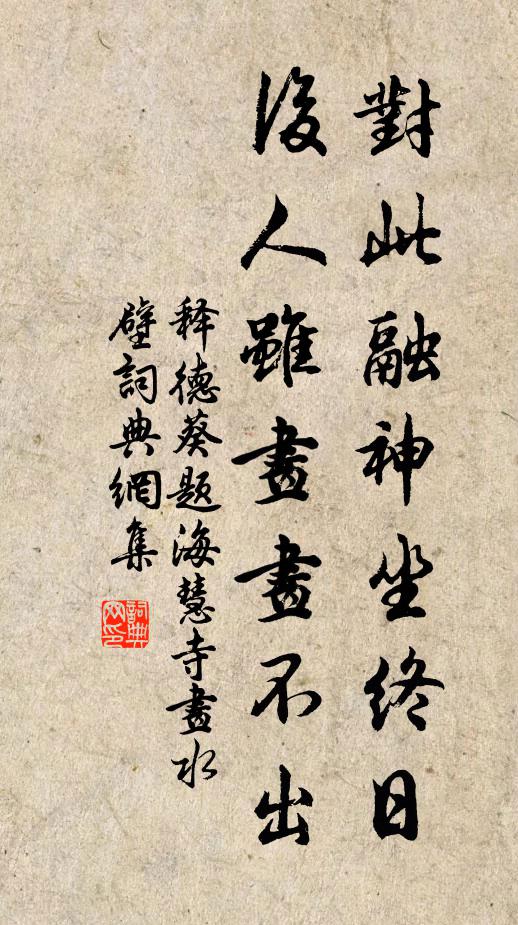 對此融神坐終日
後人雖畫畫不出
释德葵题海慧寺畫水
壁詞典網集
詞典
网印